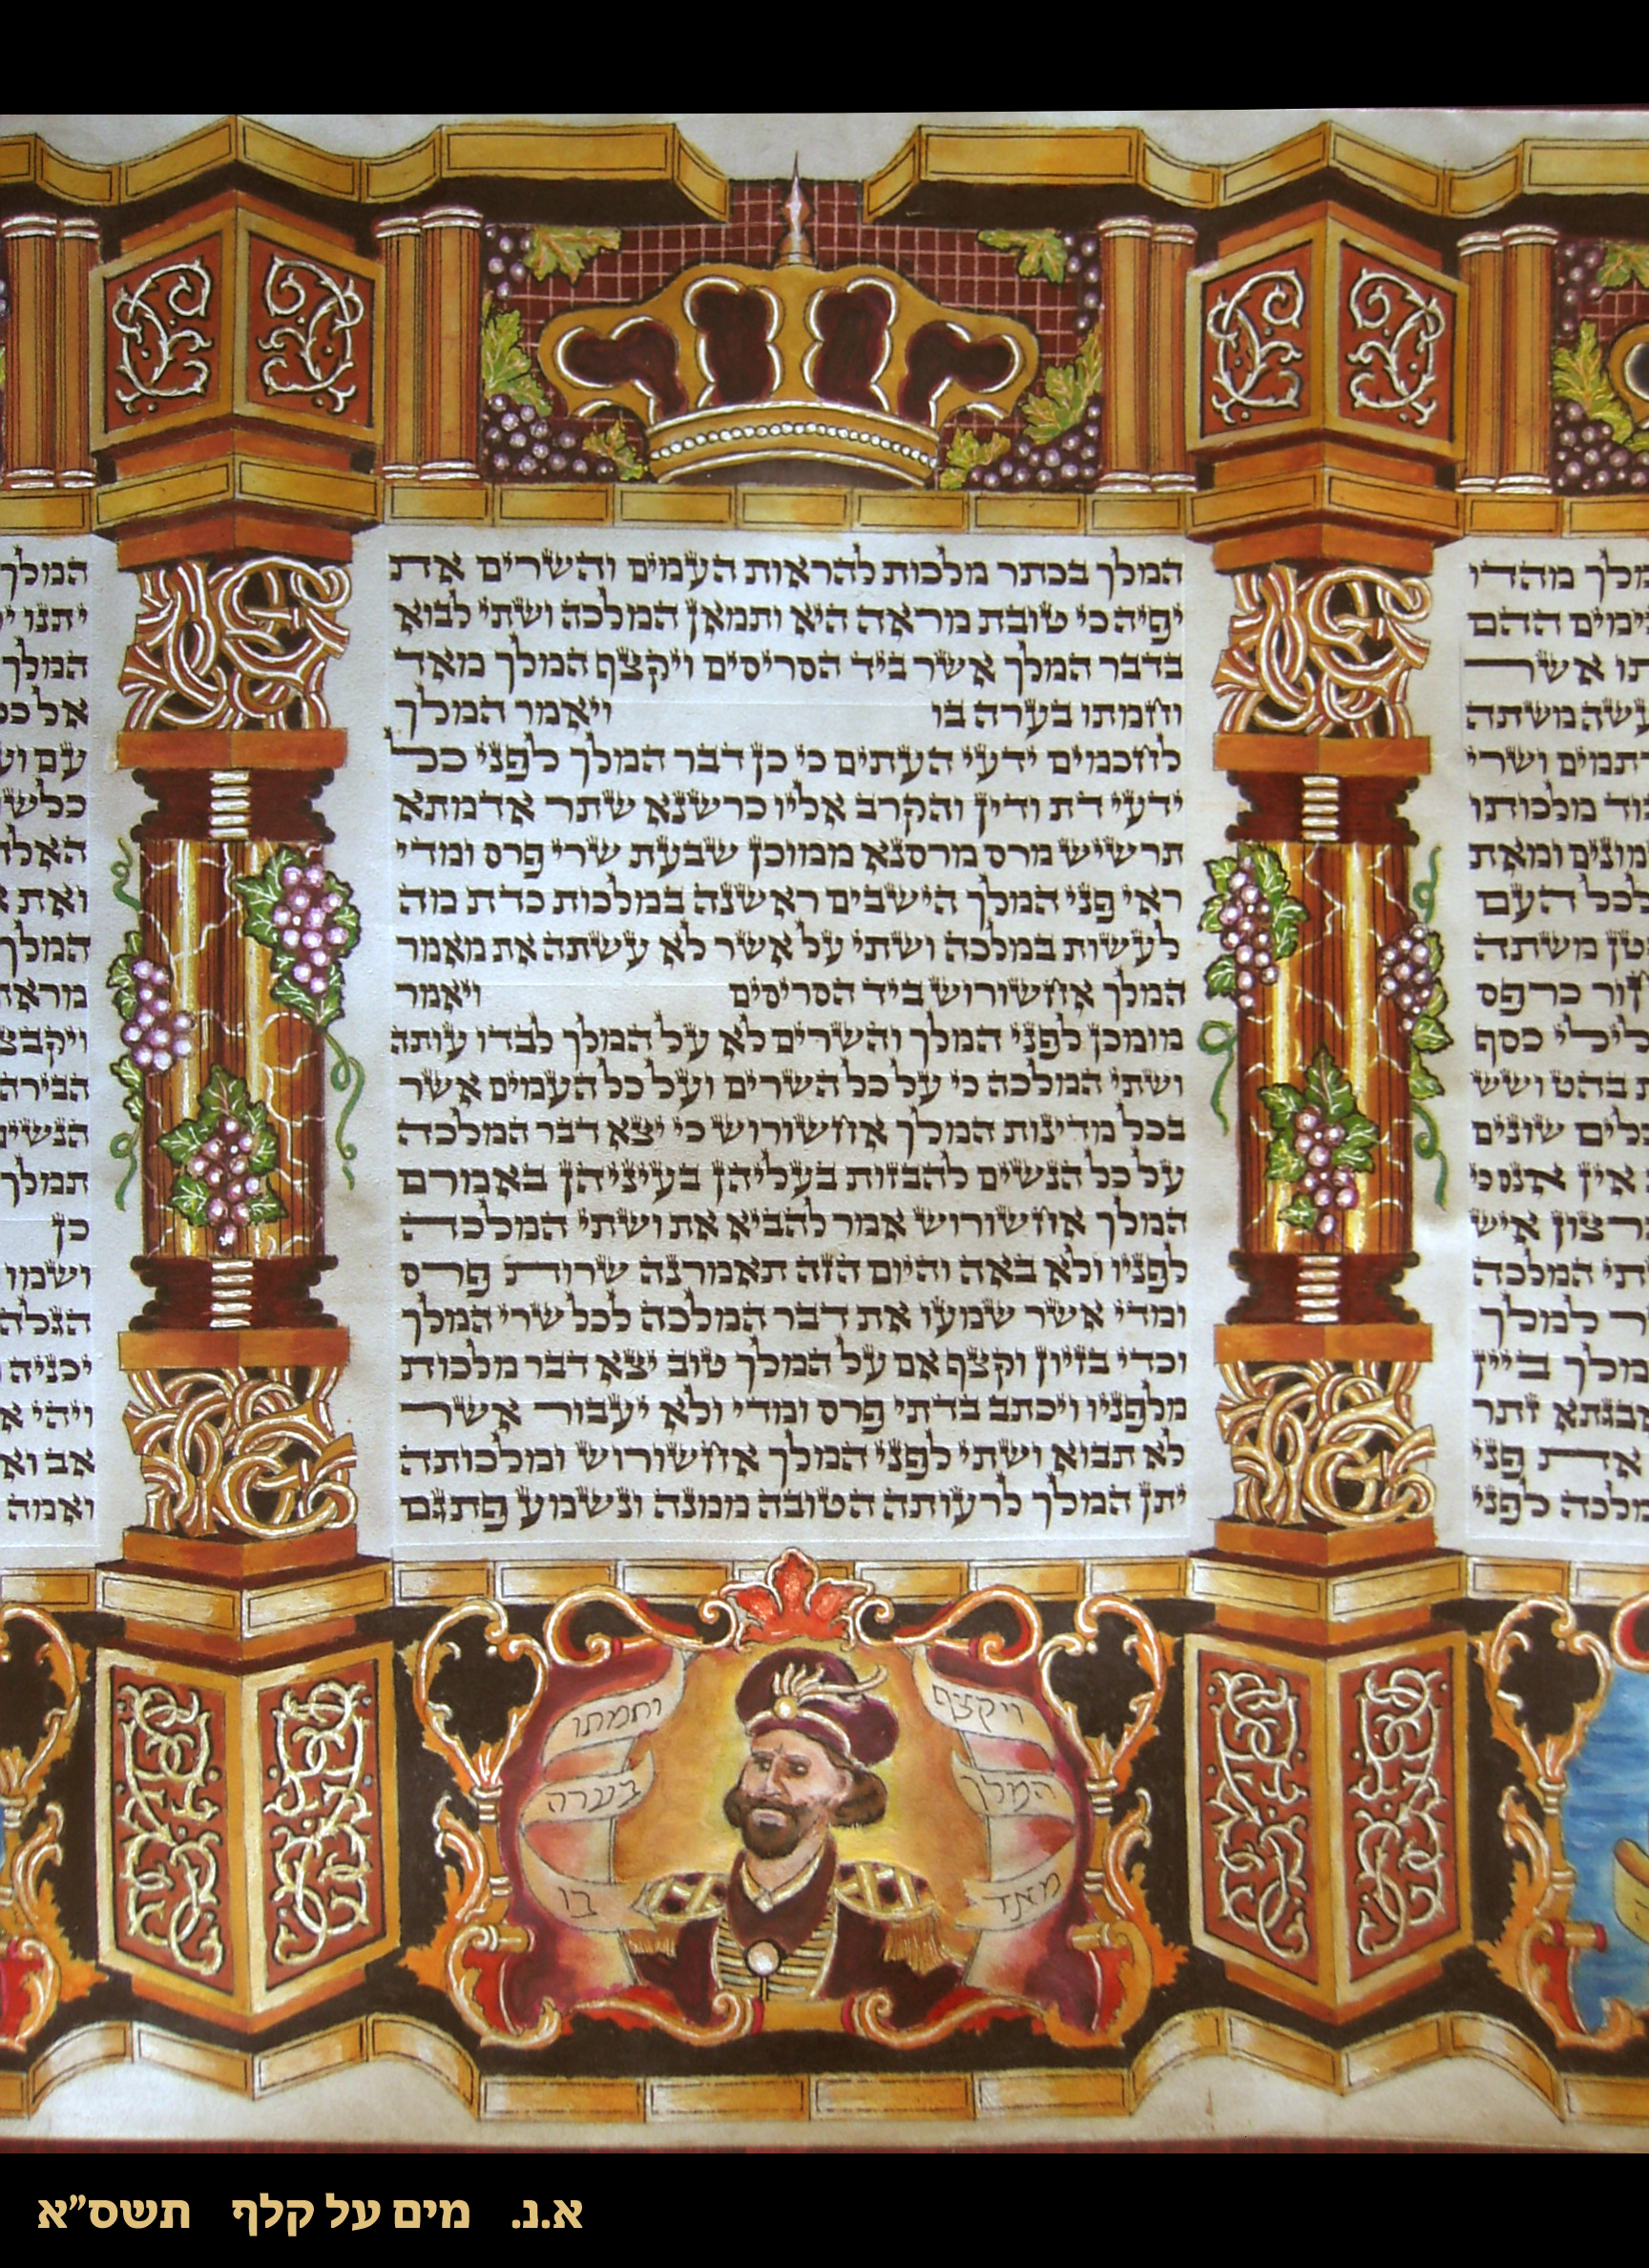 מהדו
ההם
אשר
עשה משתה
ושרי
מלכותו
ומאת
לכל העם
משתה
כרפס
כסף
בהט ושש
שונים
אין אנס כי
איש
המלכה
למלך
ביין
זתר
את פני
לפני
המלך בכתר מלכות להראות העמים והשרים את
יפיה כי טובת מראה היא ותמאן המלכה ושתי לבוא
בדבר המלך אשר ביד הסריסים ויקצף המלך מאד
וחמתו בערה בו ויאמר המלך
לחכמים ידעי העתים כי כן דבר המלך לפני כל
ידעי דת ודין והקרב אליו כרשנא שתר אדמתא
תרשיש מרס מרסנא ממוכן שבעת שרי פרס ומדי
ראי פני המלך הישבים ראשנה במלכות כדת מה
לעשות במלכה ושתי על אשר לא עשתה את מאמר
המלך אחשורוש ביד הסריסים ויאמר
מומכן לפני המלך והשרים לא על המלך לבדו עותה
ושתי המלכה כי על כל השרים ועל כל העמים אשר
בכל מדינות המלך אחשורוש כי יצא דבר המלכה
על כל הנשים להבזות בעליהן בעיניהן באמרם
המלך אחשורוש אמר להביא את ושתי המלכה
לפניו ולא באה והיום הזה תאמרנה שרות פרס
ומדי אשר שמעו את דבר המלכה לכל שרי המלך
וכדי בזיון וקצף אם על המלך טוב יצא דבר מלכות
מלפניו ויכתב בדתי פרס ומדי ולא יעבור אשר
לא תבוא ושתי לפני המלך אחשורוש ומלכותה
יתן המלך לרעותה הטובה ממנה ונשמע פתגם
המלך
יתנו
המלך
אל
עם
ואת
המלך
הבירה
תמלך
כן
ושמו
יכניה
ויהי
אב
ואמה
ויקצף
המלך
מאד
וחמתו
בערה
בו
א.נ. מים על קלף תשס"א